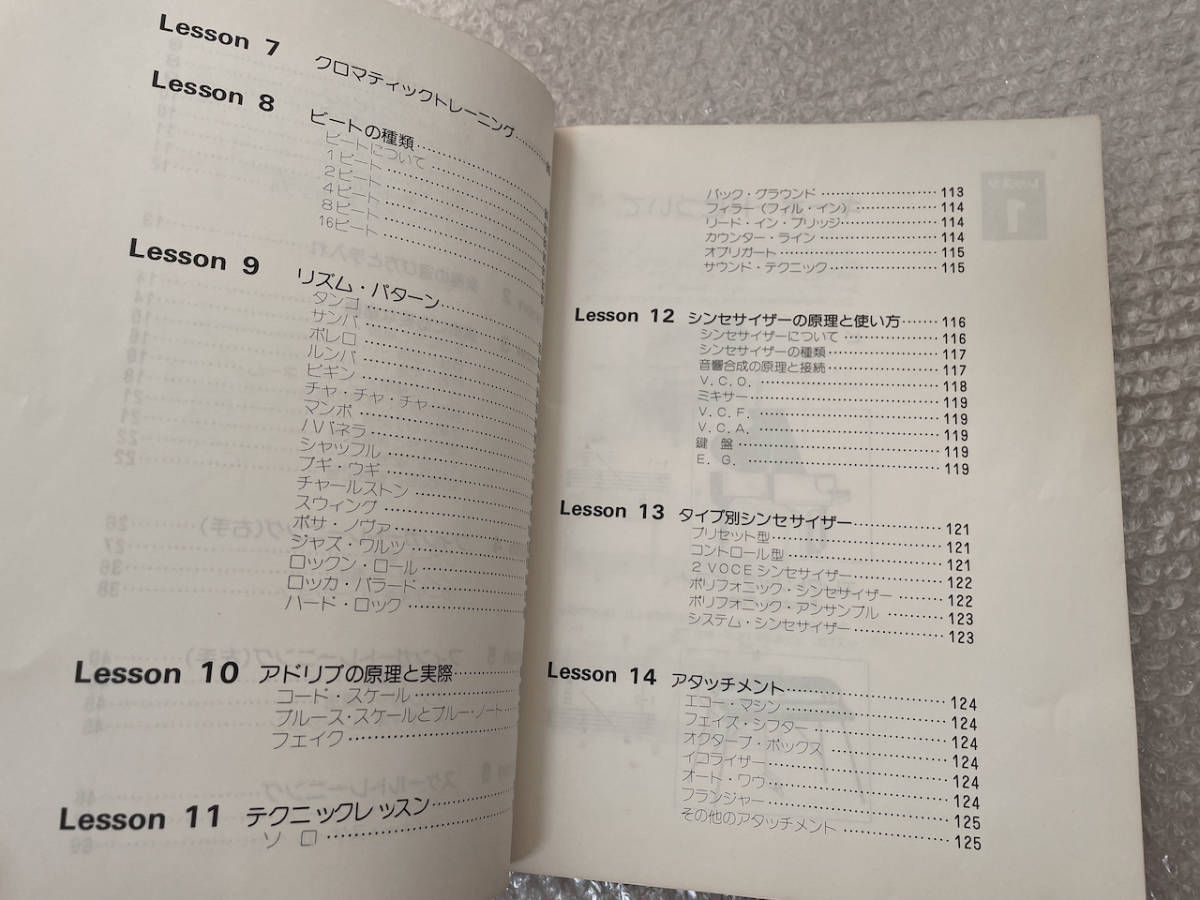 Lesson 7 クロマティックトレーニング
Lesson 8 ビートの種類
ビートについて
1ビート
2ビート
4ビート
8ビート
16ビート
Lesson 9 リズム・パターン
タンゴ
サンバ
ボレロ
ルンバ
ビギン
チャ・チャ・チャ
マンボ
ハバネラ
シャッフル
ブギ・ウギ
チャールストン
スウィング
ボサ・ノヴァ
ジャズ・ワルツ
ロックン・ロール
ロッカ・バラード
ハード・ロック
Lesson 10 アドリブの原理と実際
コード・スケール
ブルース・スケールとブルー・ノート
フェイク
Lesson 11 テクニックレッスン
ソ ロ
バック・グラウンド 113
フィラー(フィル・イン) 114
リード・イン・ブリッジ 114
カウンター・ライン 114
オブリガート 115
サウンド・テクニック 115
Lesson 12 シンセサイザーの原理と使い方 116
シンセサイザーについて 116
シンセサイザーの種類 117
音響合成の原理と接続 117
V.C.O. 118
ミキサー 119
V.C.F. 119
V.C.A. 119
鍵 盤 119
E.G. 119
Lesson 13 タイプ別シンセサイザー 121
プリセット型 121
コントロール型 121
2 VOCEシンセサイザー 122
ポリフォニック・シンセサイザー 122
ポリフォニック・アンサンブル 123
システム・シンセサイザー 123
Lesson 14 アタッチメント 124
エコー・マシン 124
フェイズ・シフター 124
オクターブ・ボックス 124
イコライザー 124
オート・ワウ 124
フランジャー 125
その他のアタッチメント 125